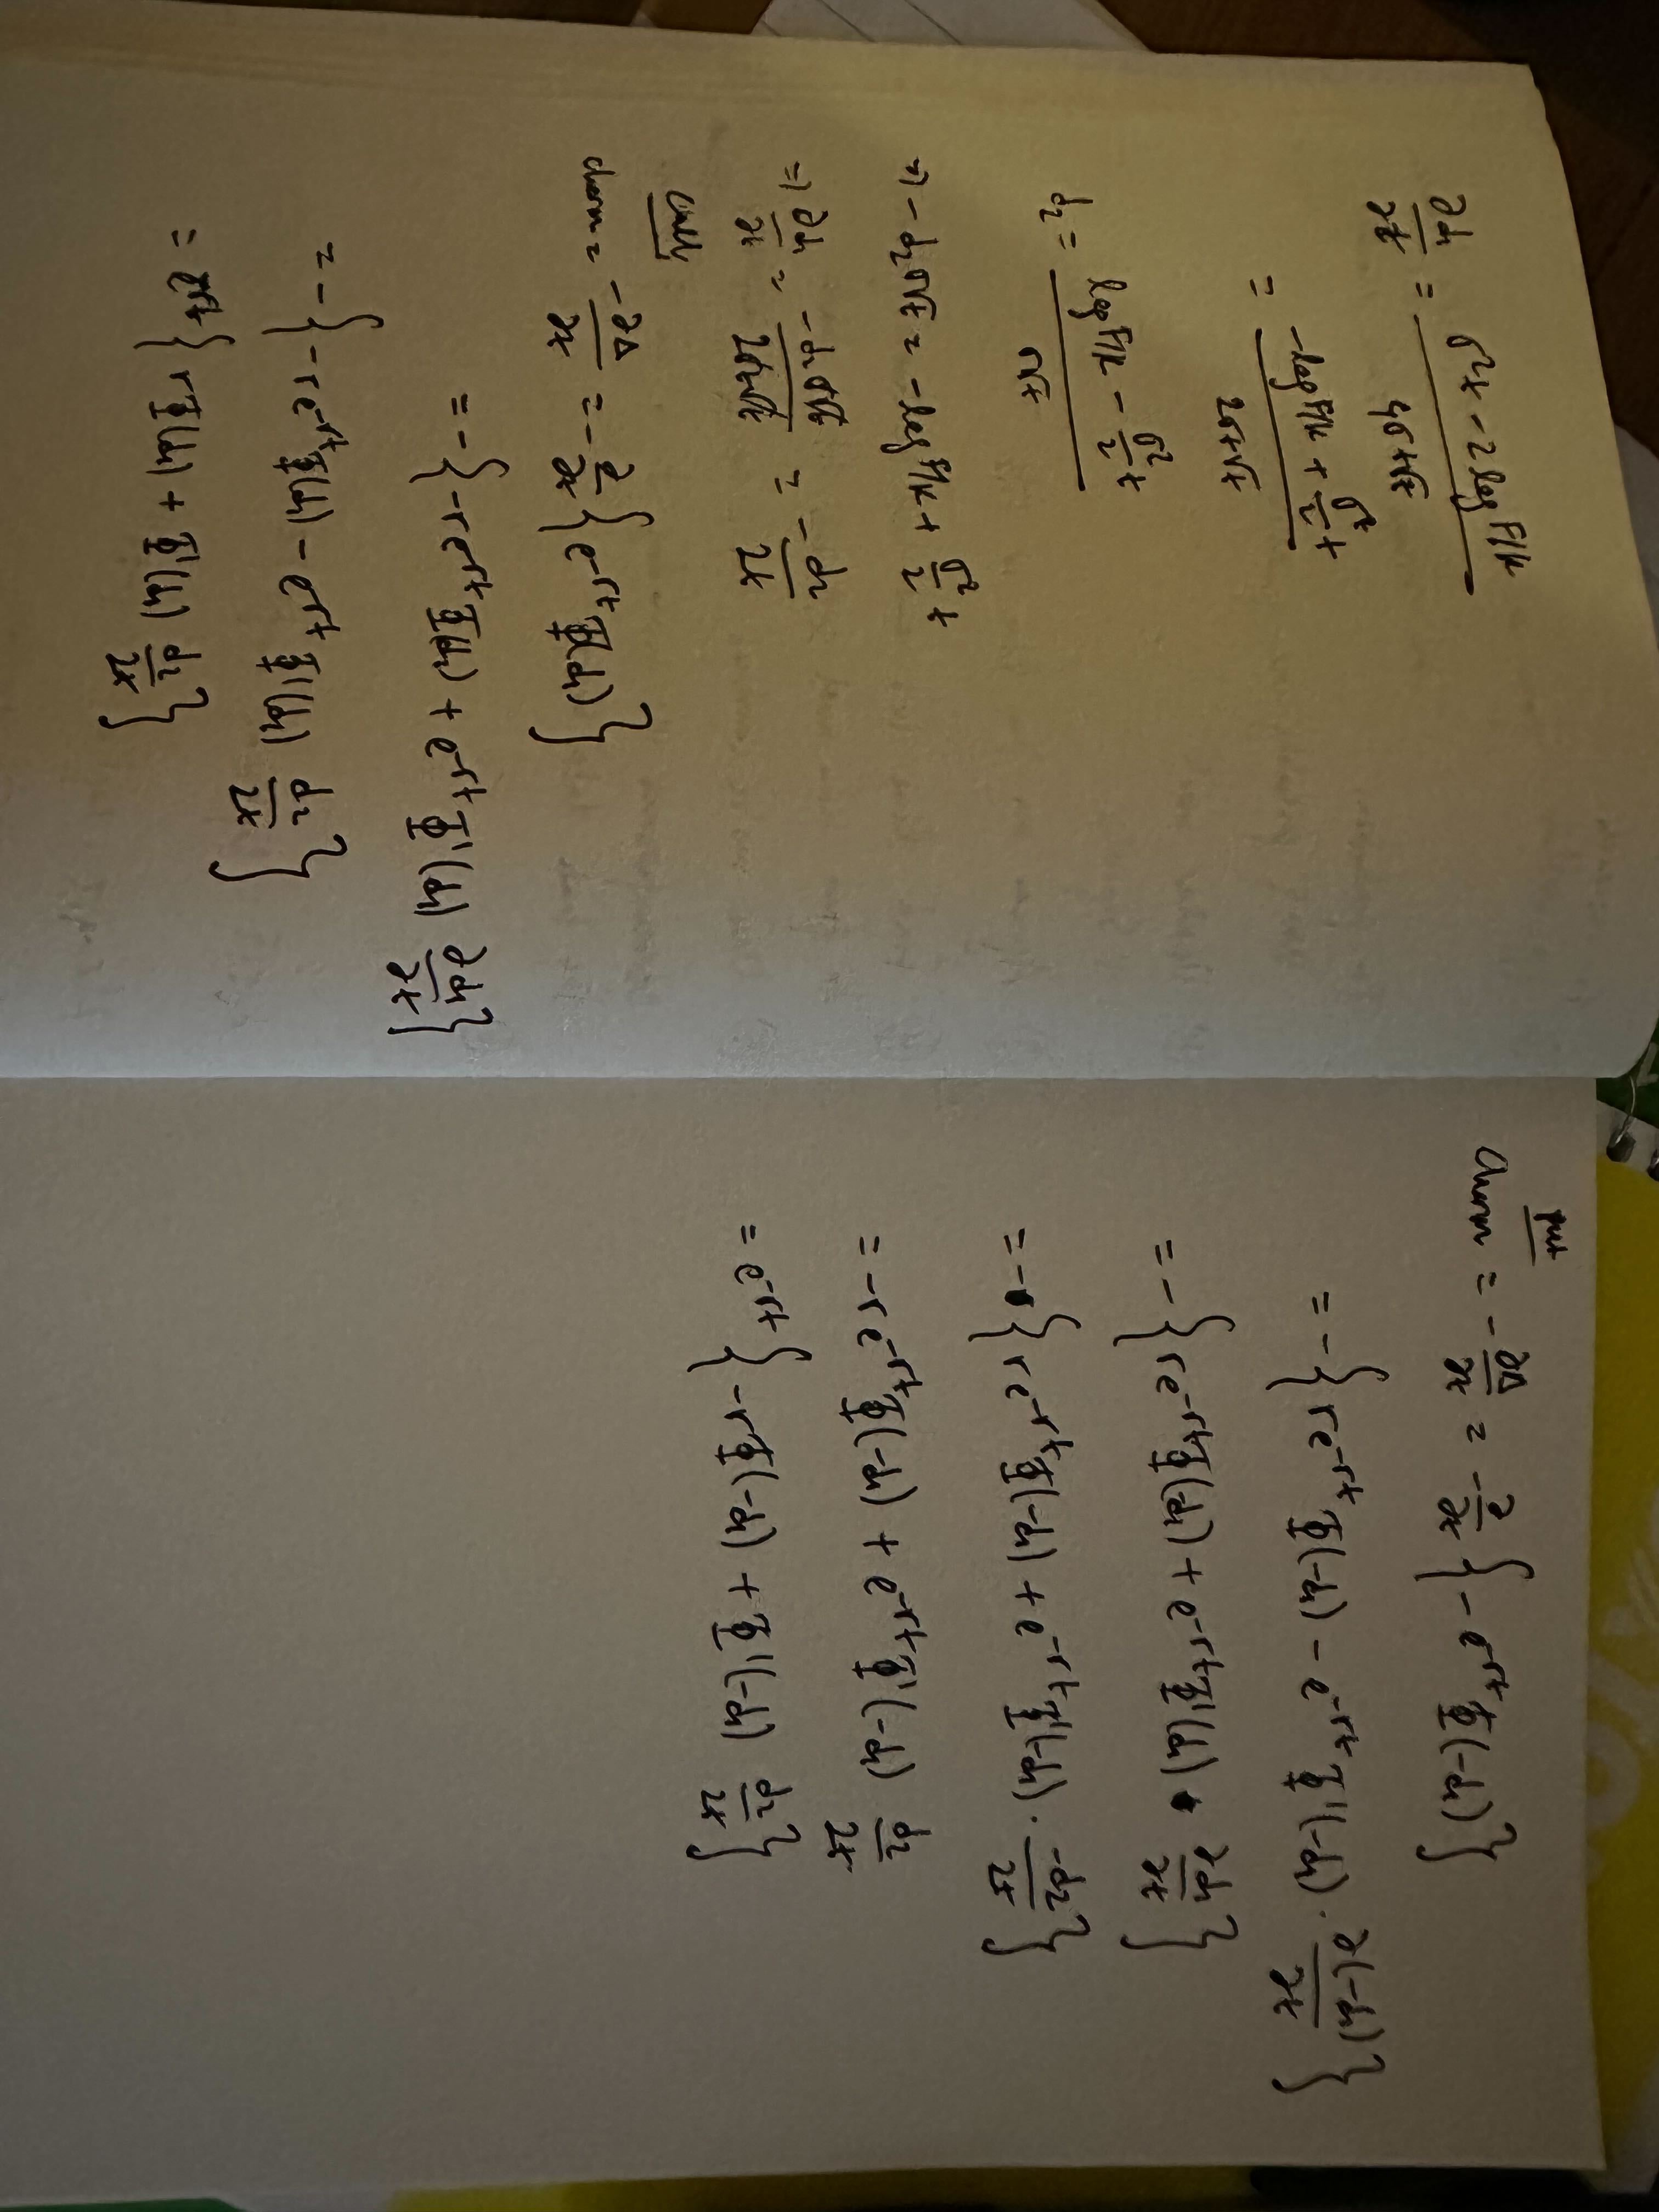 ∂d₁/∂t = (σ²t - 2 log F/K)/(4σt√t)
= (-log F/K + σ²/2 t)/(2σt√t)
d₂ = (log F/K - σ²/2 t)/(σ√t)
⇒ - d₂σ√t = - log F/K + σ²/2 t
⇒ ∂d₁/∂t = (-d₂σ√t)/(2σt√t) = -d₂/2t
Call
charm = -∂Δ/∂t = -∂/∂t {e^{-rt}Φ(d₁)}
= -{-re^{-rt}Φ(d₁) + e^{-rt}Φ'(d₁) ∂d₁/∂t}
= -{-re^{-rt}Φ(d₁) - e^{-rt}Φ'(d₁) d₂/2t}
= e^{-rt}{rΦ(d₁) + Φ'(d₁) d₂/2t}
Put
Charm = -∂Δ/∂t = -∂/∂t {-e^{-rt}Φ(-d₁)}
= -{re^{-rt}Φ(-d₁) - e^{-rt}Φ'(-d₁) · ∂(-d₁)/∂t}
= -{re^{-rt}Φ(-d₁) + e^{-rt}Φ'(d₁) · ∂d₁/∂t}
= -{re^{-rt}Φ(-d₁) + e^{-rt}Φ'(-d₁) · -d₂/2t}
= -re^{-rt}Φ(-d₁) + e^{-rt}Φ'(-d₁) d₂/2t
= e^{-rt}{-rΦ(-d₁) + Φ'(-d₁) d₂/2t}